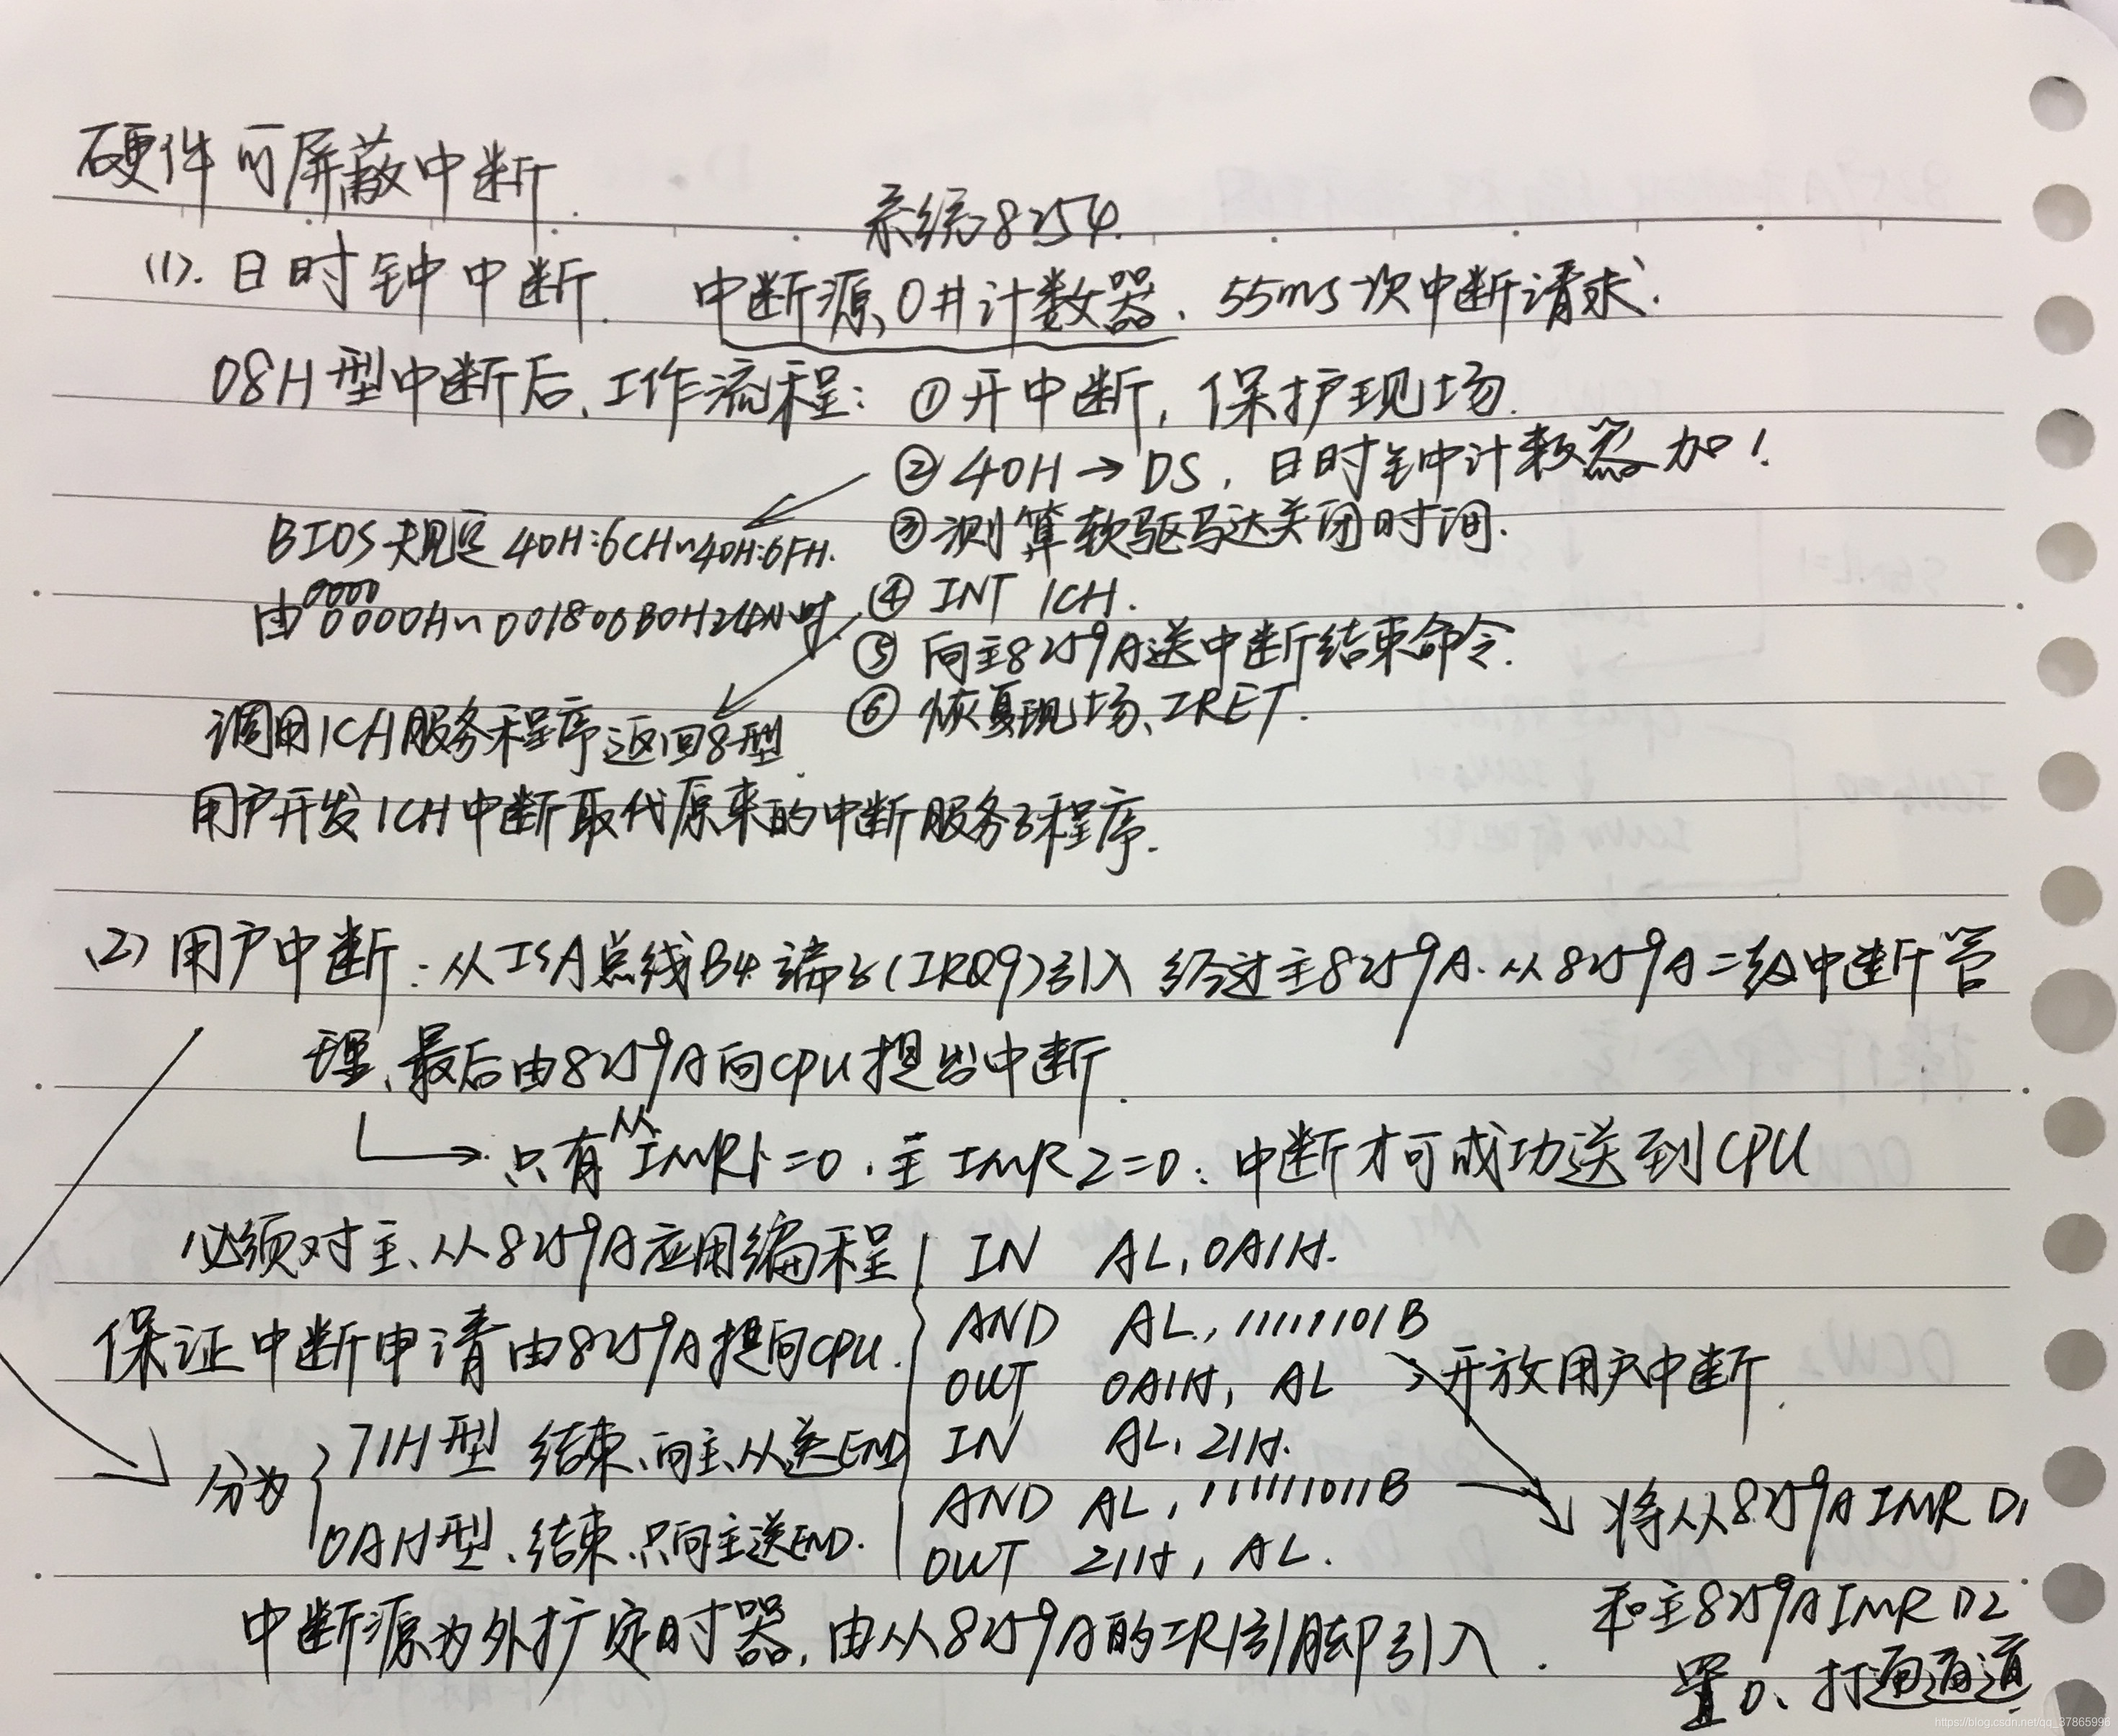 硬件可屏蔽中断.
系统8254.
(1). 日时钟中断. 中断源、0#计数器、55ms次中断请求.
08H型中断后、工作流程: ①开中断, 保护现场.
②40H→DS, 日时钟计数器加1.
BIOS规定 40H:6CH~40H:6FH.
③测算软驱马达关闭时间.
由00000000H~001800B0H24小时.
④ INT 1CH.
⑤ 向主8259A送中断结束命令.
调用1CH服务程序返回8型.
⑥ 恢复现场、IRET.
用户开发1CH中断取代原来的中断服务子程序.
(2) 用户中断: 从ISA总线B4端子(IRQ9)引入 经过主8259A. 从8259A二级中断管
理、最后由8259A向CPU提出中断.
只有从IMR1=0, 主IMR2=0: 中断才可成功送到CPU
必须对主、从8259A应用编程
保证中断申请由8259A提向CPU.
IN AL, 0A1H.
AND AL, 11111101B
OUT 0A1H, AL
IN AL, 21H.
AND AL, 111111011B
OUT 21H, AL.
开放用户中断.
将从8259A IMR D1
和主8259A IMR D2
置0、打通通道
分为 71H型 结束、向主、从送END
0AH型、结束、只向主送END.
中断源为外扩定时器, 由从8259A的IR1引脚引入.
https://blog.csdn.net/qq_37865996